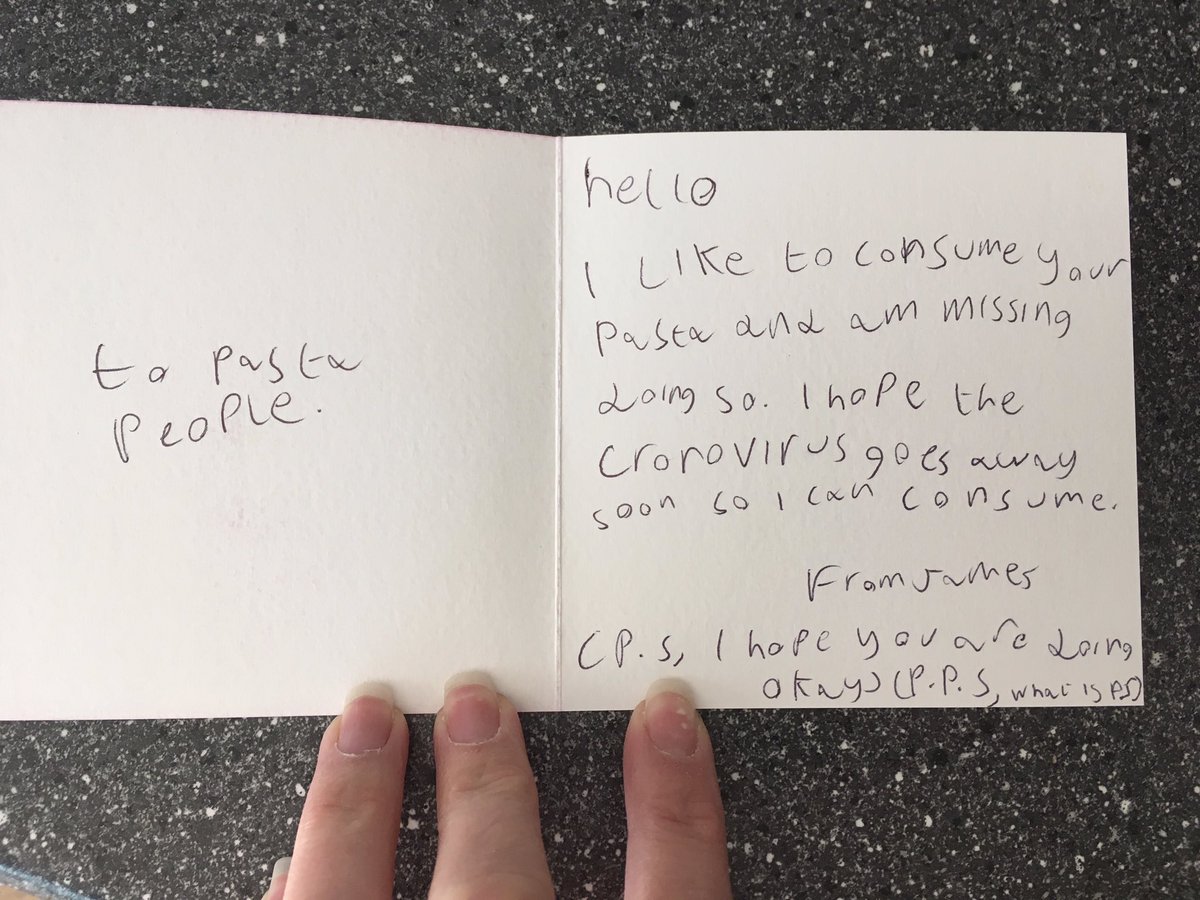 to pasta
people.
hello
I Like to consume your
pasta and am missing
doing so. I hope the
Crorovirus goes away
soon so I can consume.
From James
(P.S, I hope you are doing
okay) (P.P.S, what is PS)